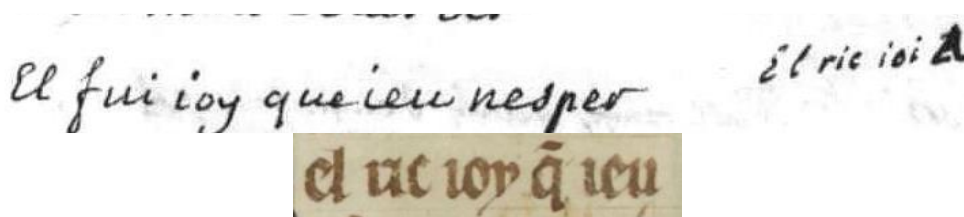 El fin ioy que ieu nesper
El ric ioi A
el ric ioy q̄ ieu